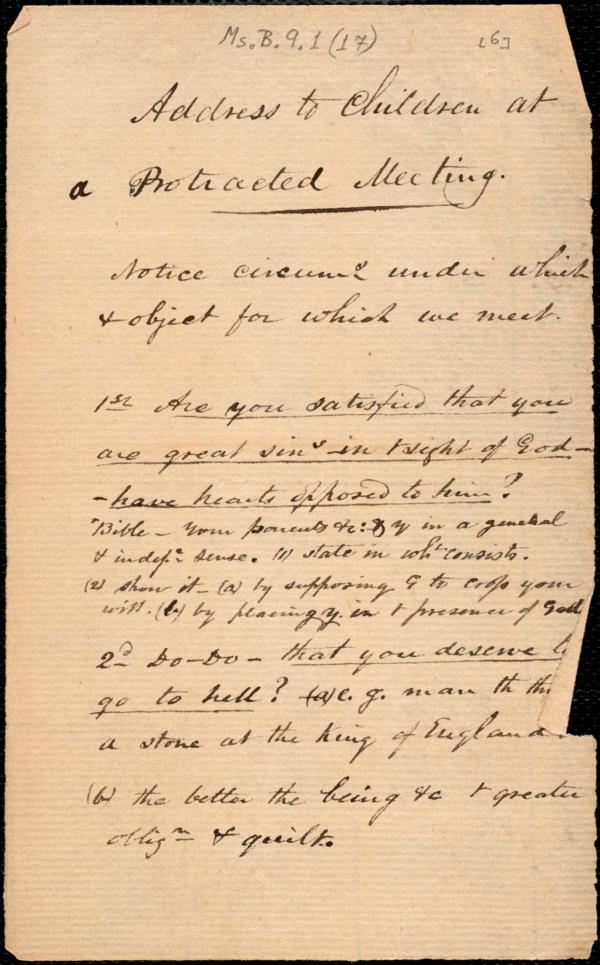 Ms. B. 9. 1 (17) [6]
Address to Children at
a Protracted Meeting.
Notice circums under which
& object for which we meet.
1st Are you satisfied that you
are great sins in t sight of God -
- have hearts opposed to him?
Bible - Your parents &c: & y in a general
& indefe sense. (1) state in wht consists.
(2) show it - (a) by supposing G to cross your
will. (b) by placing y. in t presence of God
2d Do - Do - that you deserve
go to hell? (a) e. g. man th
a stone at the King of England.
(b) the better the being &c t greater
oblign & guilt.